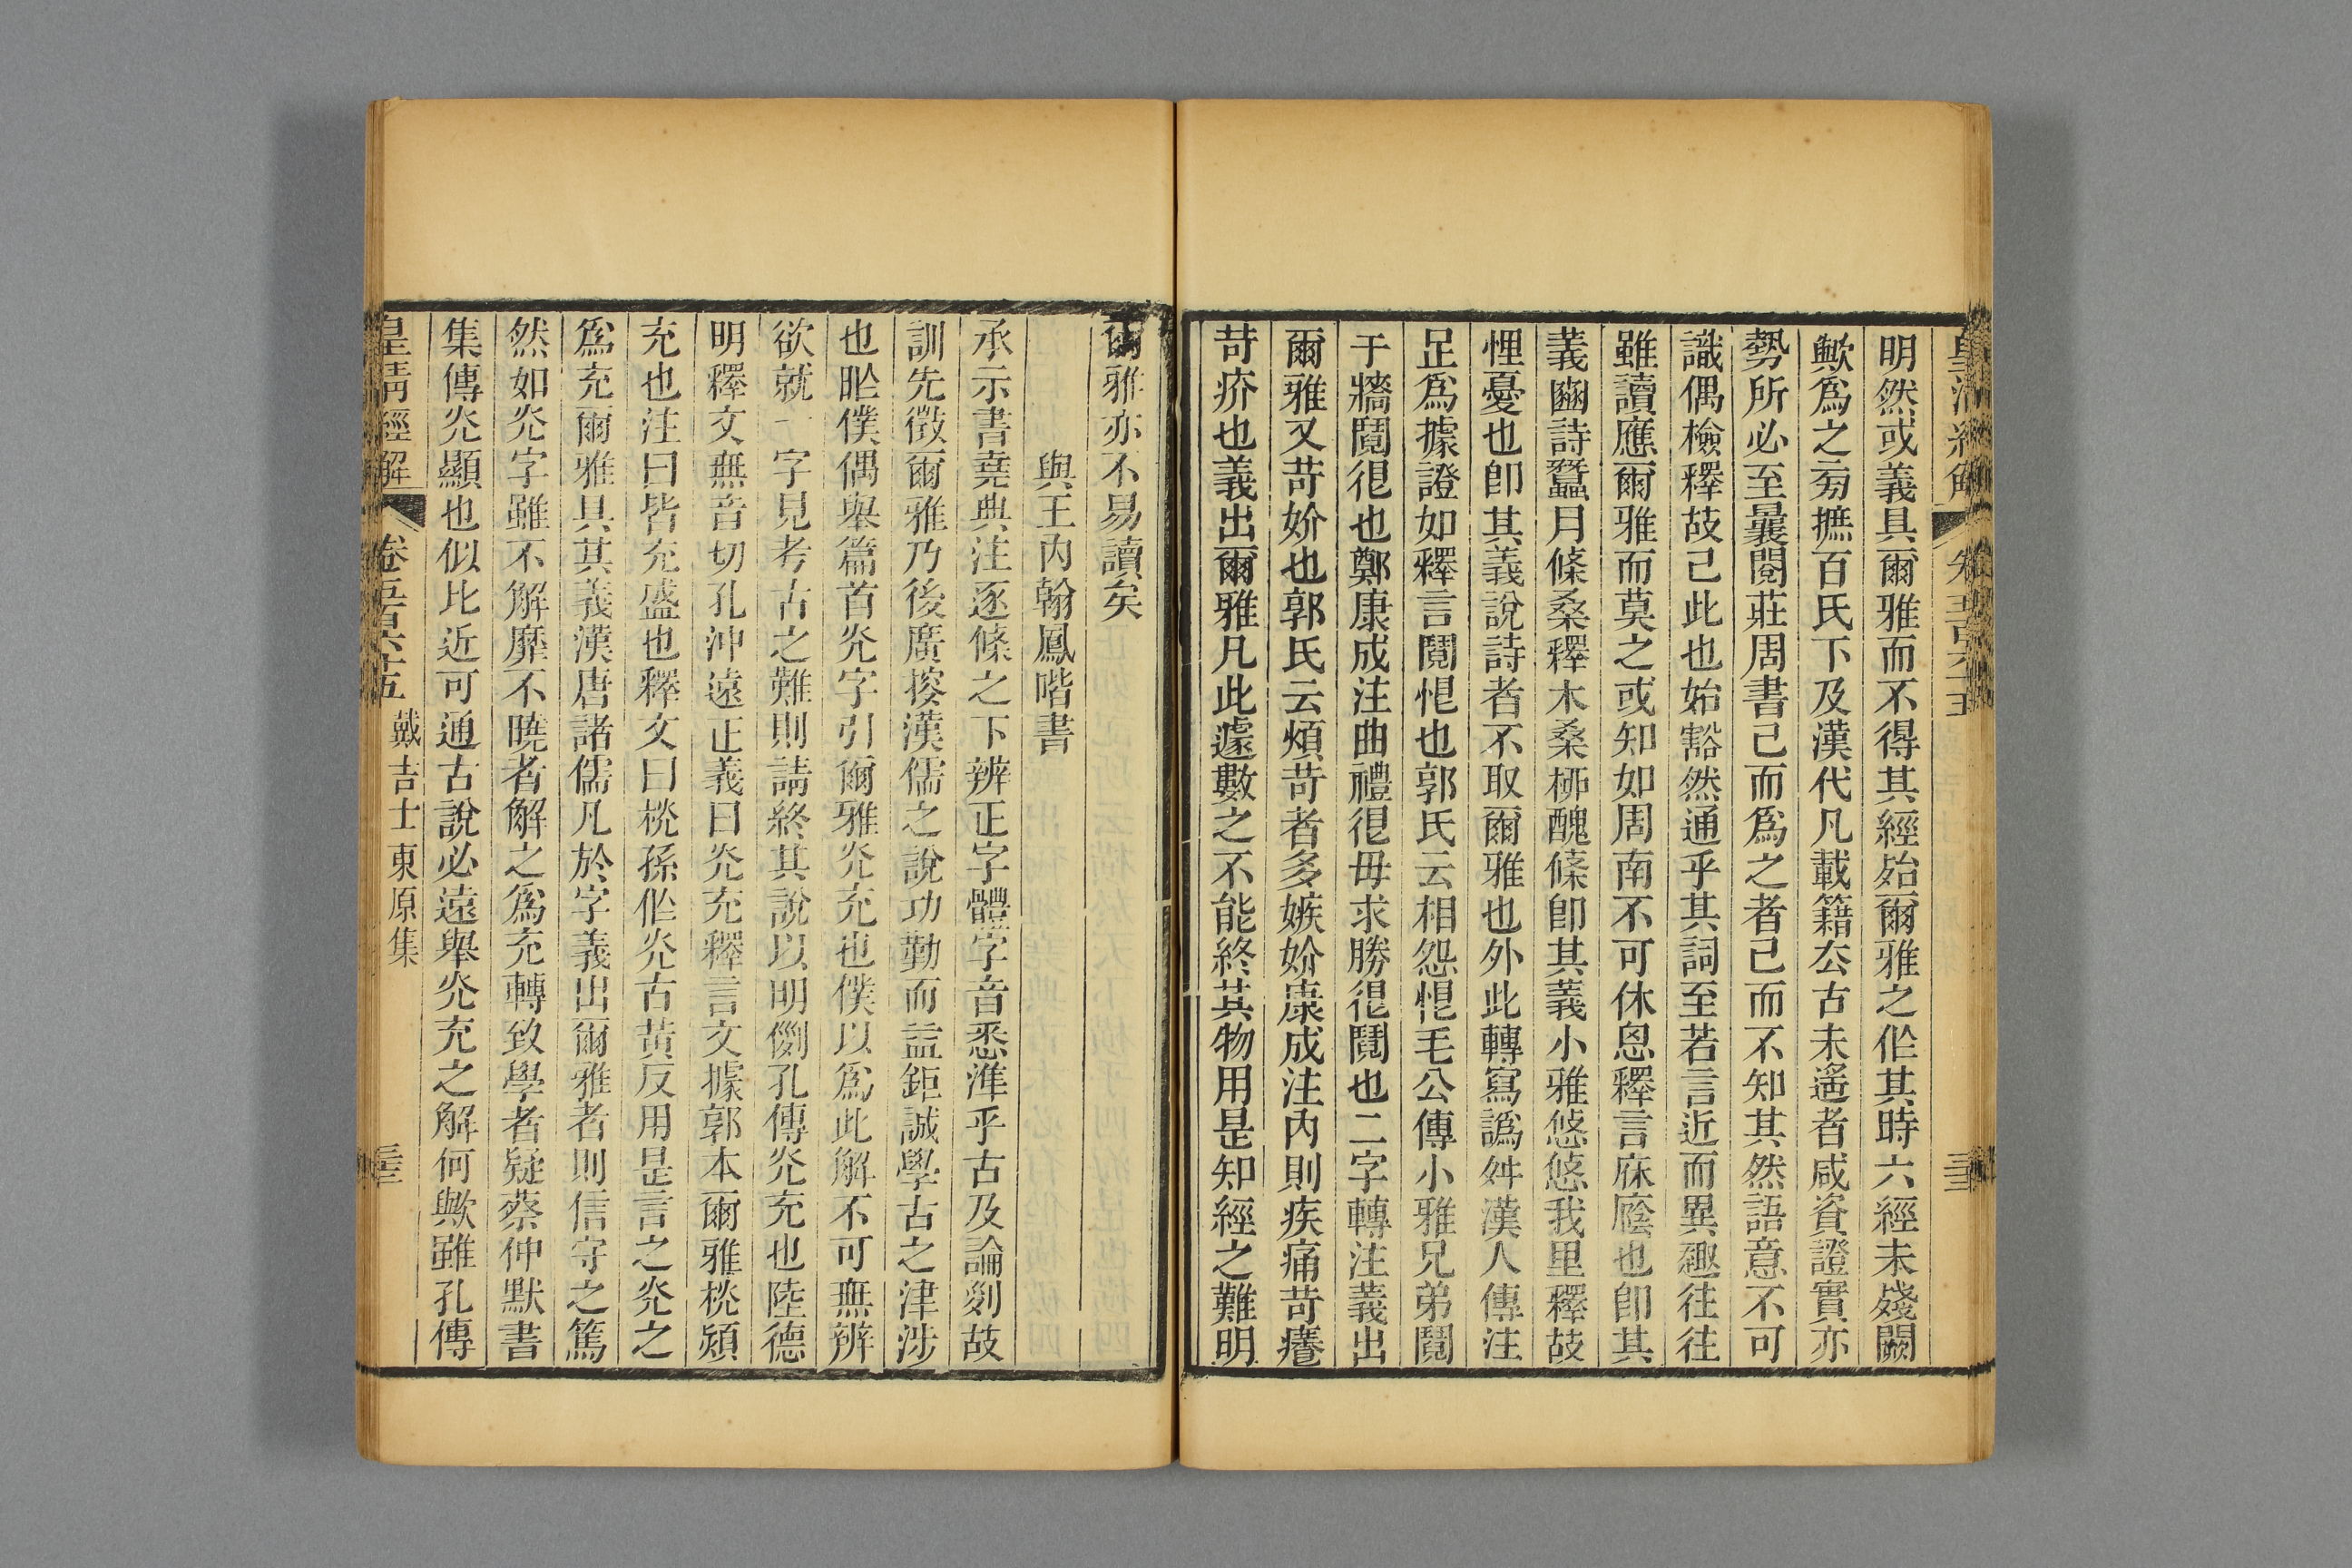 皇清經解 卷五百六十五
明然或義具爾雅而不得其經殆爾雅之作其時六經未殘闕
歟爲之旁摭百氏下及漢代凡載籍去古未遙者咸資證實亦
勢所必至曩閱莊周書已而爲之者已而不知其然語意不可
識偶檢釋故已此也始豁然通乎其詞至若言近而異趣往往
雖讀應爾雅而莫之或知如周南不可休息釋言庥廕也卽其
義豳詩蠶月條桑釋木桑柳醜條卽其義小雅悠悠我里釋故
悝憂也卽其義說詩者不取爾雅也外此轉寫譌舛漢人傳注
足爲據證如釋言鬩恨也郭氏云相怨恨毛公傳小雅兄弟鬩
于牆鬩很也鄭康成注曲禮很毋求勝很鬩也二字轉注義出
爾雅又苛妎也郭氏云煩苛者多嫉妎康成注內則疾痛苛癢
苛疥也義出爾雅凡此遽數之不能終其物用是知經之難明
爾雅亦不易讀矣
與王內翰鳳喈書
承示書堯典注逐條之下辨正字體字音悉準乎古及論列故
訓先徵爾雅乃後廣搜漢儒之說功勤而益鉅誠學古之津涉
也昨僕偶舉篇首灮字引爾雅灮充也僕以爲此解不可無辨
欲就一字見考古之難則請終其說以明例孔傳灮充也陸德
明釋文無音切孔沖遠正義曰灮充釋言文據郭本爾雅桄熲
充也注曰皆充盛也釋文曰桄孫作灮古黃反用是言之灮之
爲充爾雅具其義漢唐諸儒凡於字義出爾雅者則信守之篤
然如灮字雖不解靡不曉者解之爲充轉致學者疑蔡仲默書
集傳灮顯也似比近可通古說必遠舉灮充之解何歟雖孔傳
皇淸經解 卷五百六十五 戴吉士東原集 三